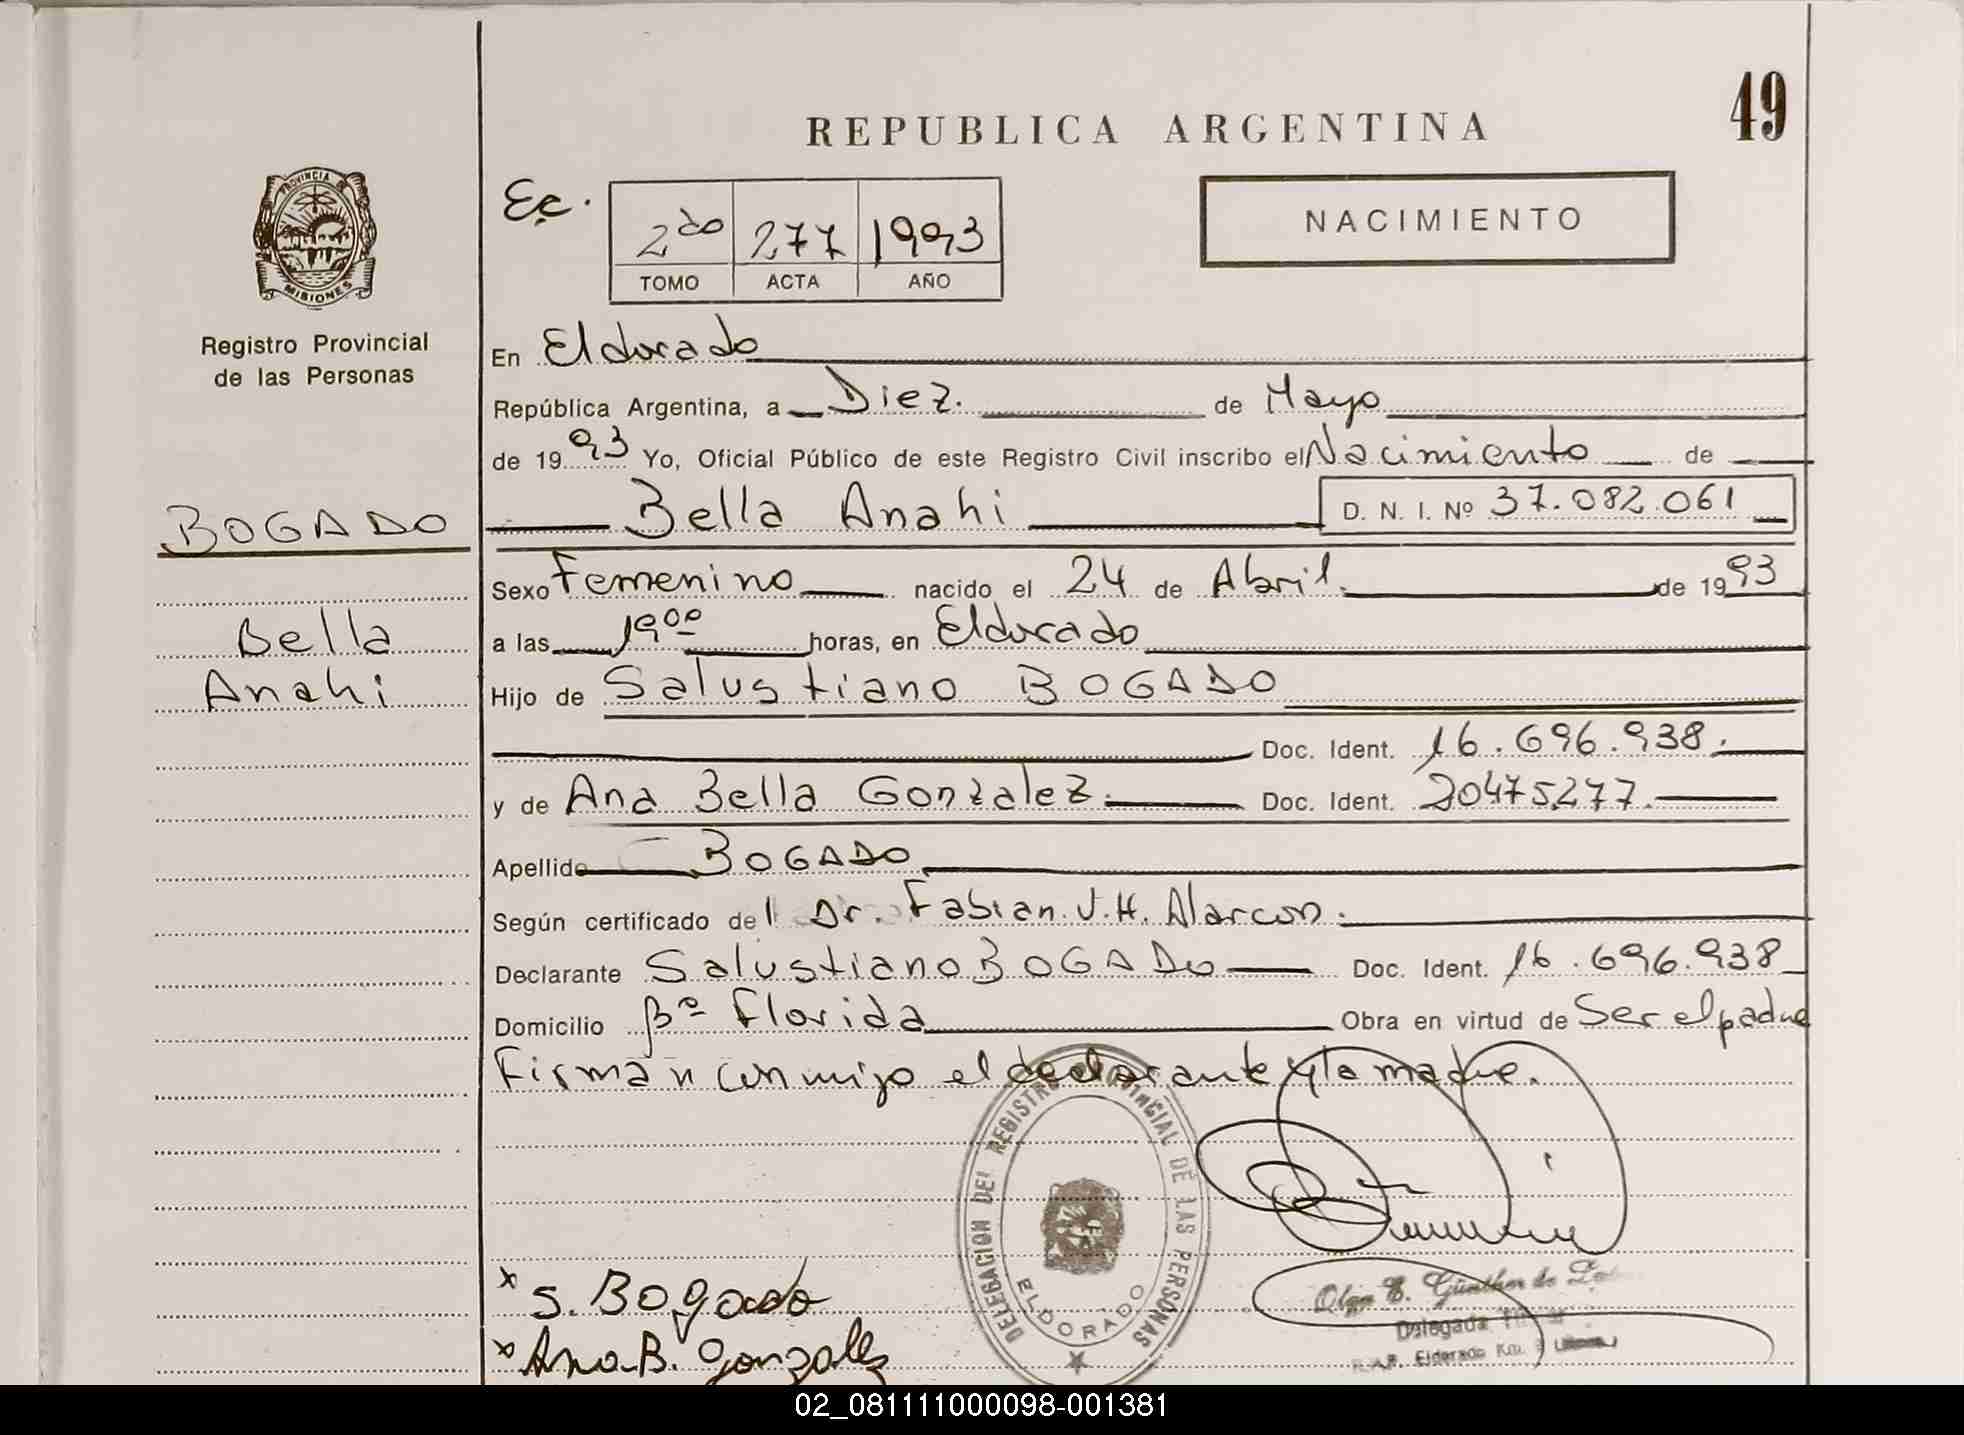 49
REPUBLICA ARGENTINA
PROVINCIA DE
MISIONES
Registro Provincial
de las Personas
BOGADO
Bella
Anahi
Ec.
2do 277 1993
TOMO ACTA AÑO
NACIMIENTO
En Eldorado
República Argentina, a Diez. de Mayo
de 1993 Yo, Oficial Público de este Registro Civil inscribo el Nacimiento de
Bella Anahi D. N. I. Nº 37.082.061
Sexo Femenino nacido el 24 de Abril. de 1993
a las 19 00 horas, en Eldorado
Hijo de Salustiano BOGADO
Doc. Ident. 16.696.938.
y de Ana Bella Gonzalez. Doc. Ident. 20475277.
Apellido BOGADO
Según certificado del Dr. Fabian J.H. Alarcon.
Declarante Salustiano BOGADO Doc. Ident. 16.696.938
Domicilio Bº Florida Obra en virtud de Ser el padre
Firman conmigo el declarante y la madre.
DELEGACION DEL REGISTRO PROVINCIAL DE LAS PERSONAS
ELDORADO
x S. Bogado
x Ana B. Gonzalez
Olga E. Günther de
Delegada
Eldorado Km.
02_081111000098-001381